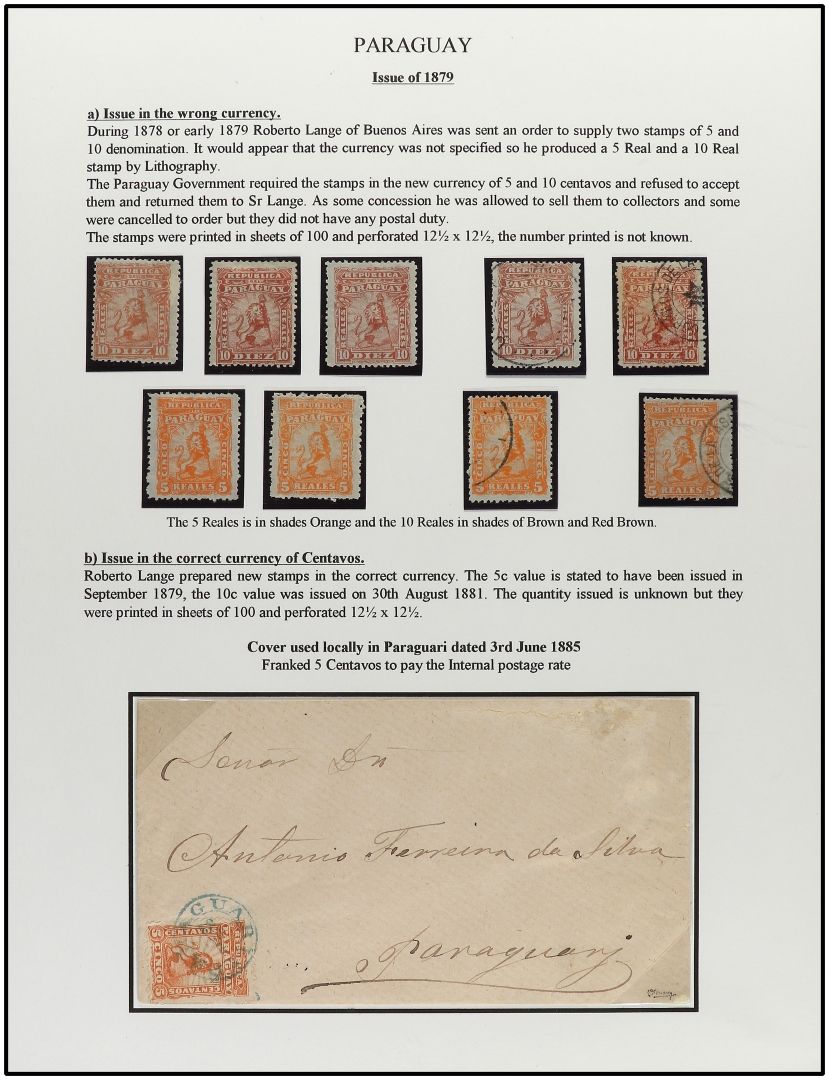 PARAGUAY
Issue of 1879
a) Issue in the wrong currency.
During 1878 or early 1879 Roberto Lange of Buenos Aires was sent an order to supply two stamps of 5 and
10 denomination. It would appear that the currency was not specified so he produced a 5 Real and a 10 Real
stamp by Lithography.
The Paraguay Government required the stamps in the new currency of 5 and 10 centavos and refused to accept
them and returned them to Sr Lange. As some concession he was allowed to sell them to collectors and some
were cancelled to order but they did not have any postal duty.
The stamps were printed in sheets of 100 and perforated 12½ x 12½, the number printed is not known.
REPUBLICA
PARAGUAY
10 DIEZ 10
REPUBLICA
PARAGUAY
REALES
10 DIEZ 10
REPUBLICA
PARAGUAY
REALES
10 DIEZ 10
PARAGUAY
10 DIEZ 10
REPUBLICA
PARAGUAY
10 DIEZ 10
REPUBLICA
PARAGUAY
CINCO
5 REALES 5
REPUBLICA
PARAGUAY
CINCO
5 REALES 5
REPUBLICA
PARAGUAY
CINCO
5 REALES 5
REPUBLICA
PARAGUAY
5 REALES 5
The 5 Reales is in shades Orange and the 10 Reales in shades of Brown and Red Brown.
b) Issue in the correct currency of Centavos.
Roberto Lange prepared new stamps in the correct currency. The 5c value is stated to have been issued in
September 1879, the 10c value was issued on 30th August 1881. The quantity issued is unknown but they
were printed in sheets of 100 and perforated 12½ x 12½.
Cover used locally in Paraguari dated 3rd June 1885
Franked 5 Centavos to pay the Internal postage rate
Señor Dn
Antonio Ferreira da Silva
Paraguarj
5 CENTAVOS
CINCO
REPUBLICA
PARAGUAY
5 CENTAVOS